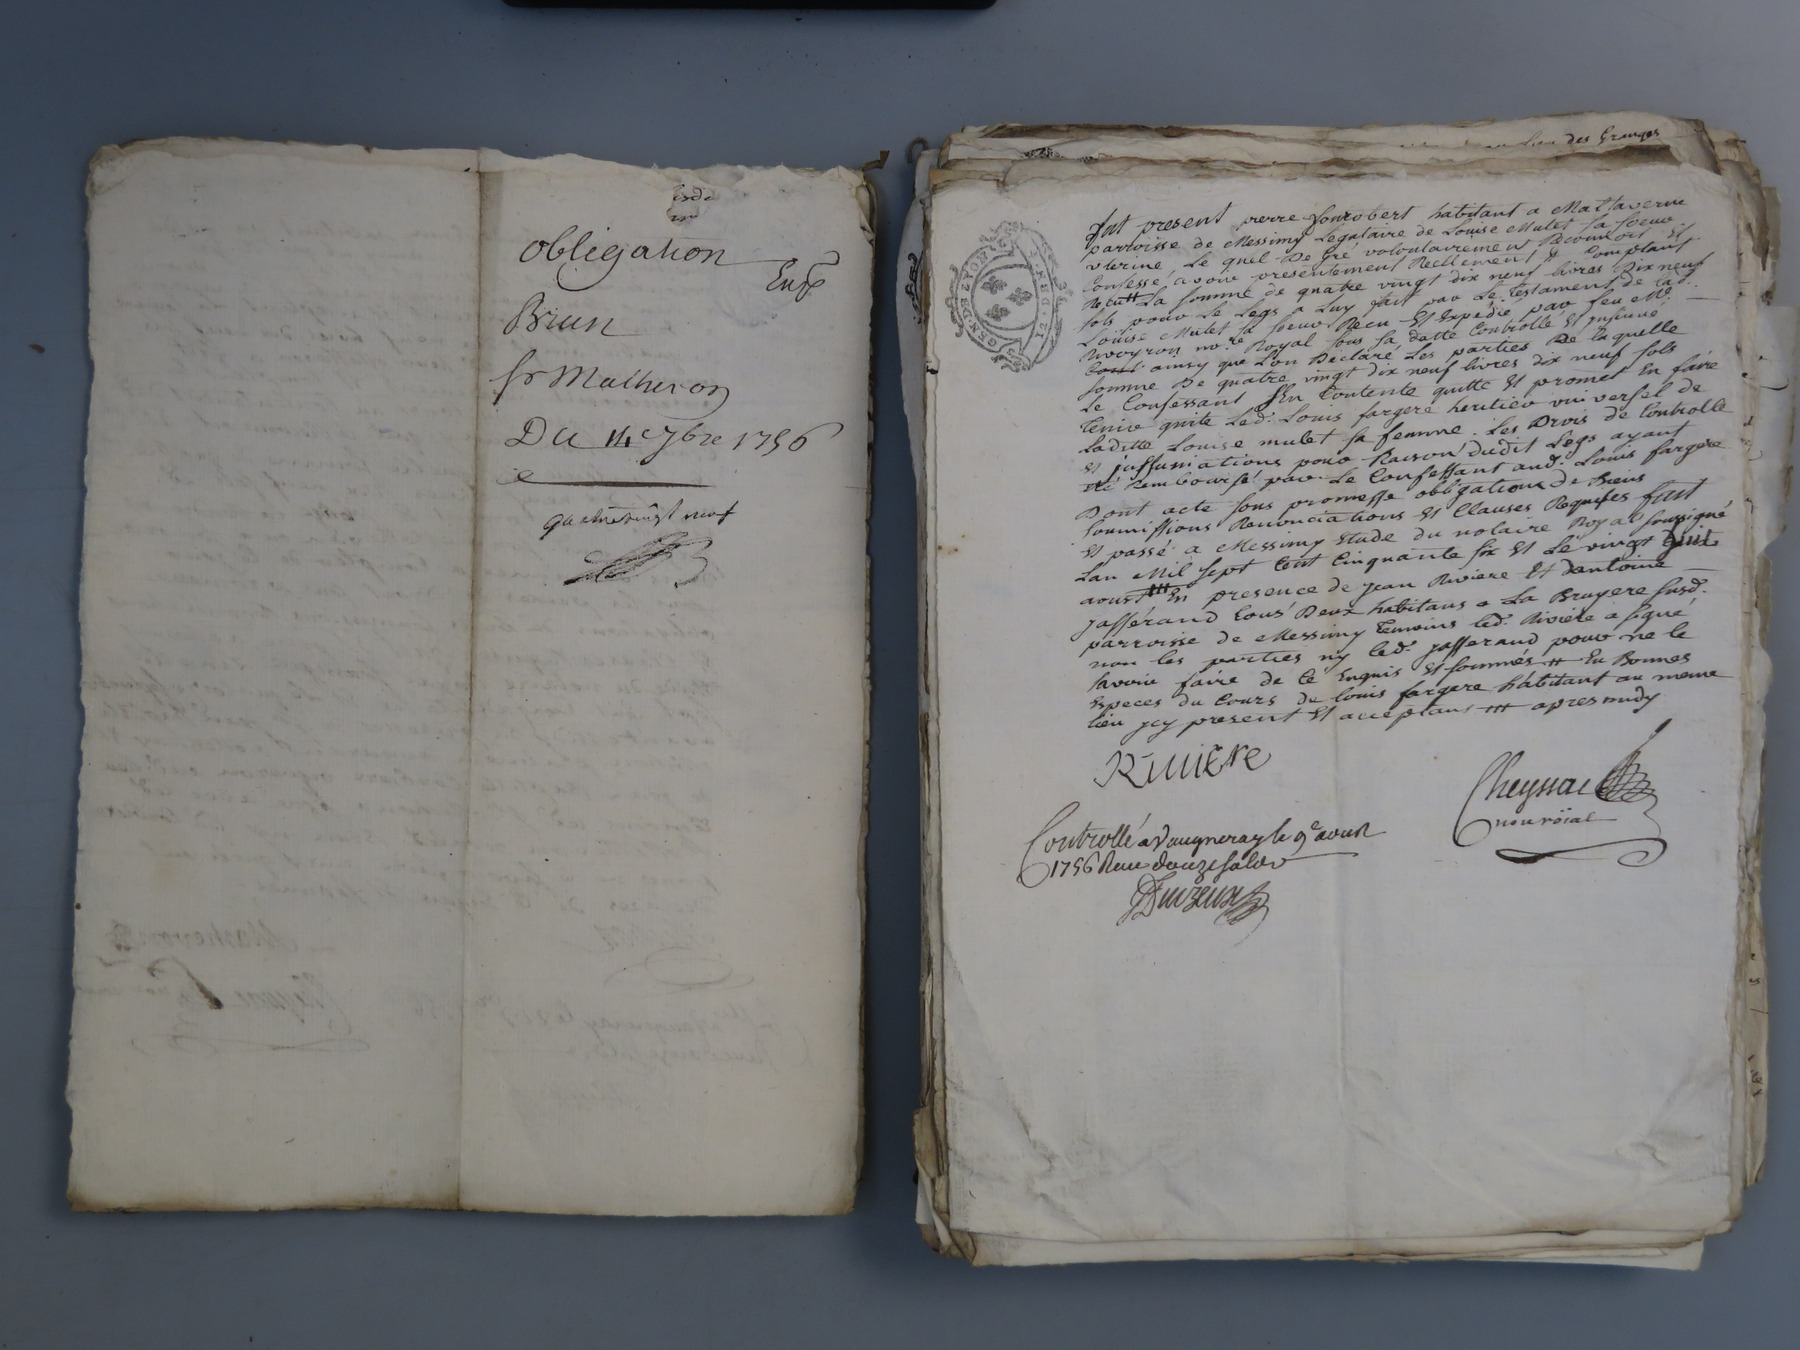 obligation
Expé
Brun
Sr Matheron
Du 14e 7bre 1756
quatrevingt neuf
des Granges
GEN. DE LYON
Fut present pierre Fonrobert habitant a Mallaverne
parroisse de Messimy Legataire de Louise Mulet sa soeur
uterine, Le quel De gré volontairement Reconnoit Et
Confesse avoir presentement Reellement Et Comptant
Recu # La somme de quatre vingt dix neuf livres Dix neuf
sols pour Le Legs a Luy fait par Le Testament de lad.
Louise Mulet sa soeur Recu Et Expedié par feu Me
nore Royal sous sa datte Controllé Et insinué
ainsy que L'on Declaré Les parties De laquelle
somme De quatre vingt dix neuf livres dix neuf sols
Le Confessant s'En Contente quitte Et promet En faire
Tenir quite Led. Louis fargere heritier universel de
Laditte Louise mulet sa femme. Les Drois de Controlle
Et insinuations pour Raison dudit Legs ayant
été Remboursé par Le Confessant aud. Louis fargere
Dont acte sous promesse obligations De Biens
soumissions Renonciations Et Clauses Requises fait
Et passé a Messimy Etude du notaire Royal soussigné
Lan Mil sept Cent Cinquante six Et Le vingt huit
aoust ### En presence de Jean Riviere Et d'antoine
Jasserand tous Deux habitans a La Bruyere susd.
parroisse de Messimy Temoins led. Riviere a signé
non les parties ny led. Jasserand pour ne le
savoir faire de ce Enquis Et sommés # En Bonnes
Especes du Cours de Louis fargere habitant au meme
lieu jcy present Et acceptant ### apres midy
RIVIERE
Cheyssac
nore roïal
Controllé a Vaugneray le 9e
1756 Recu douze sols